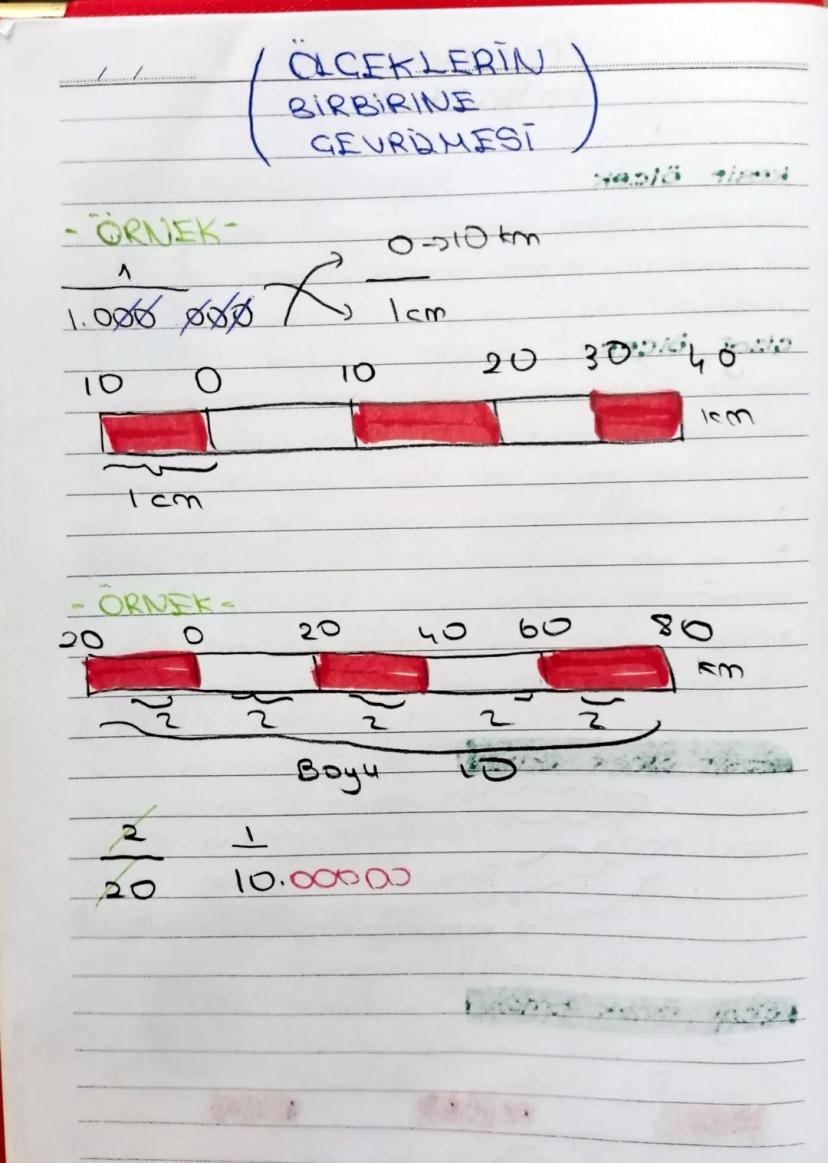 / /
ÖLÇEKLERİN
BİRBİRINE
ÇEVRİLMESİ
-ÖRNEK-
1
1.000 000
0→10 km
1cm
10 0 10 20 30 40
km
1 cm
-ÖRNEK-
20 0 20 40 60 80
km
2 2 2 2 2
Boyu 10
2 1
20 10.00000